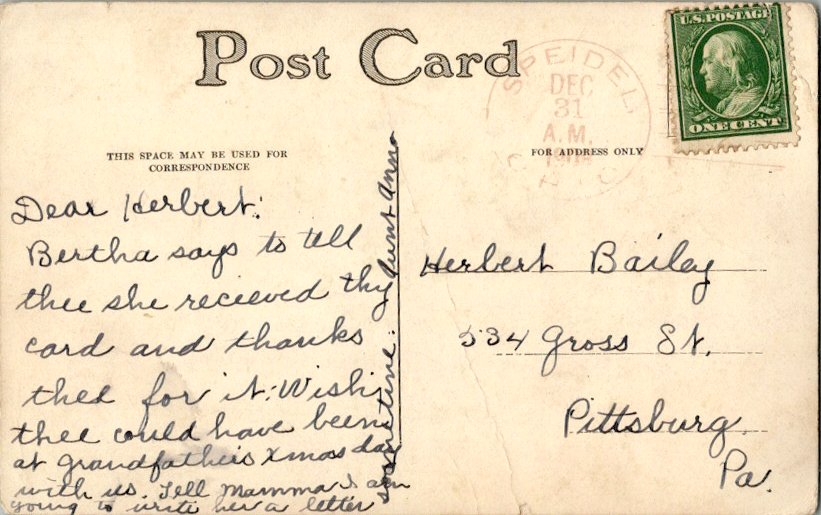 Post Card
THIS SPACE MAY BE USED FOR
CORRESPONDENCE
Dear Herbert:
Bertha says to tell
thee she recieved thy
card and thanks
thee for it. Wish
thee could have been
at Grandfather's Xmas day
with us. Tell Mamma I am
going to write her a letter
sometime. Aunt Anna
SPEIDEL
DEC
31
A.M.
U.S. POSTAGE
ONE CENT
FOR ADDRESS ONLY
Herbert Bailey
534 Gross St.
Pittsburg
Pa.